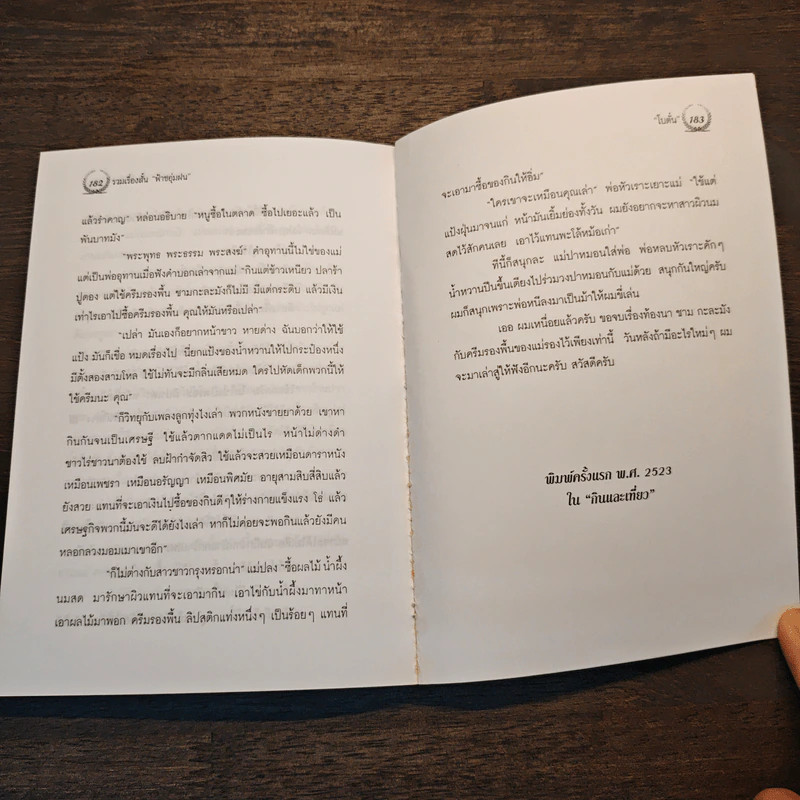 182 รวมเรื่องสั้น "ฟ้าชอุ่มฝน"
แล้วรำคาญ" หล่อนอธิบาย "หนูซื้อในตลาด ซื้อไปเยอะแล้ว เป็น
พันบาทมัง"
"พระพุทธ พระธรรม พระสงฆ์" คำอุทานนี้ไม่ใช่ของแม่
แต่เป็นพ่ออุทานเมื่อฟังคำบอกเล่าจากแม่ "กินแต่ข้าวเหนียว ปลาร้า
ปูดอง แต่ใช้ครีมรองพื้น ชามกะละมังก็ไม่มี มีแต่กระติบ แล้วมีเงิน
เท่าไรเอาไปซื้อครีมรองพื้น คุณให้มันหรือเปล่า"
"เปล่า มันเองก็อยากหน้าขาว หายด่าง ฉันบอกว่าให้ใช้
แป้ง มันก็เชื่อ หมดเรื่องไป นี่ยกแป้งของน้ำหวานให้ไปกระป๋องหนึ่ง
มีตั้งสองสามโหล ใช้ไม่ทันจะมีกลิ่นเสียหมด ใครไปหัดเด็กพวกนี้ให้
ใช้ครีมนะ คุณ"
"ก็วิทยุกับเพลงลูกทุ่งไงเล่า พวกหนังขายยาด้วย เขาหา
กินกันจนเป็นเศรษฐี ใช้แล้วตากแดดไม่เป็นไร หน้าไม่ด่างดำ
ชาวไร่ชาวนาต้องใช้ ลบฝ้ากำจัดสิว ใช้แล้วจะสวยเหมือนดาราหนัง
เหมือนเพชรา เหมือนอรัญญา เหมือนพิศมัย อายุสามสิบสี่สิบแล้ว
ยังสวย แทนที่จะเอาเงินไปซื้อของกินดีๆ ให้ร่างกายแข็งแรง โธ่ แล้ว
เศรษฐกิจพวกนี้มันจะดีได้ยังไงเล่า หาก็ไม่ค่อยจะพอกินแล้วยังมีคน
หลอกลวงมอมเมาเขาอีก"
"ก็ไม่ต่างกับสาวชาวกรุงหรอกน่า" แม่ปลง "ซื้อผลไม้ น้ำผึ้ง
นมสด มารักษาผิวแทนที่จะเอามากิน เอาไข่กับน้ำผึ้งมาทาหน้า
เอาผลไม้มาพอก ครีมรองพื้น ลิปสติกแท่งหนึ่งๆ เป็นร้อยๆ แทนที่
"ใบตั่น" 183
จะเอามาซื้อของกินให้อิ่ม"
"ใครเขาจะเหมือนคุณเล่า" พ่อหัวเราะเยาะแม่ "ใช้แต่
แป้งฝุ่นมาจนแก่ หน้ามันเยิ้มย่องทั้งวัน ผมยังอยากจะหาสาวผิวนม
สดไว้สักคนเลย เอาไว้แทนพะโล้หม้อเก่า"
ทีนี้ก็สนุกละ แม่ปาหมอนใส่พ่อ พ่อหลบหัวเราะคักๆ
น้ำหวานปีนขึ้นเตียงไปร่วมวงปาหมอนกับแม่ด้วย สนุกกันใหญ่ครับ
ผมก็สนุกเพราะพ่อหนีลงมาเป็นม้าให้ผมขี่เล่น
เออ ผมเหนื่อยแล้วครับ ขอจบเรื่องท้องนา ชาม กะละมัง
กับครีมรองพื้นของแม่รองไว้เพียงเท่านี้ วันหลังถ้ามีอะไรใหม่ๆ ผม
จะมาเล่าสู่ให้ฟังอีกนะครับ สวัสดีครับ
พิมพ์ครั้งแรก พ.ศ. 2523
ใน "กินและเที่ยว"